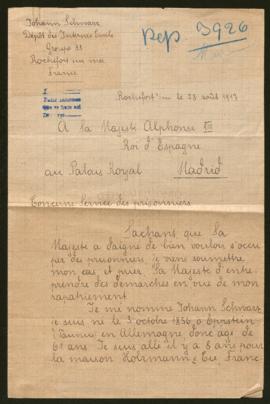 Johann Schwarz
Dépôt des Internés Civils
Groupe
Rochefort sur mer
France
Rep 3926
Rochefort s/m le 28 août 1917
A Sa Majesté Alphonse XIII
Roi d'Espagne
au Palais Royal Madrid
Concerne Service des prisonniers
Sachant que Sa
Majesté a daigné de bien vouloir s'occu
per des prisonniers je viens soumettre
mon cas et prier Sa Majesté d'entre
prendre des démarches en vue de mon
rapatriement
Je me nomme Johann Schwarz
je suis né le 3 octobre 1856 à Eppstein
(Taunus) en Allemagne, donc âgé de
61 ans. Je suis allé il y a 8 ans pour
la maison Holzmann & Cie Franc